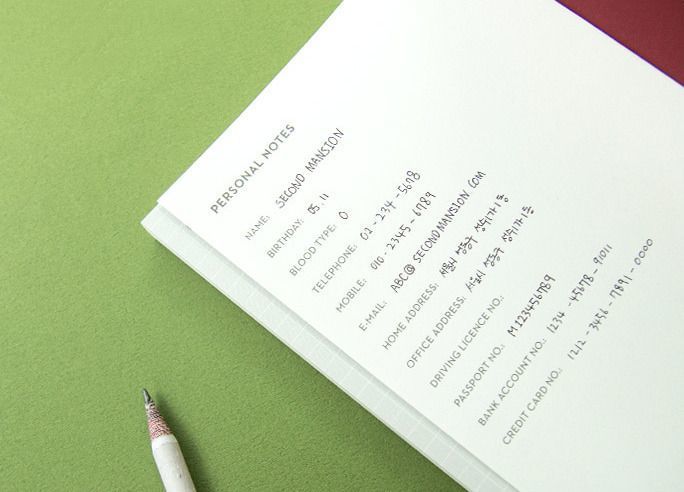 PERSONAL NOTES
NAME: SECOND MANSION
BIRTHDAY: 05.11
BLOOD TYPE: O
TELEPHONE: 02-234-5678
MOBILE: 010-2345-6789
E-MAIL: ABC@SECONDMANSION.COM
HOME ADDRESS: 서울시 성동구 성수1가1동
OFFICE ADDRESS: 서울시 성동구 성수1가1동
DRIVING LICENCE NO.:
PASSPORT NO.: M123456789
BANK ACCOUNT NO.: 1234-45678-91011
CREDIT CARD NO.: 1212-3456-7891-0000